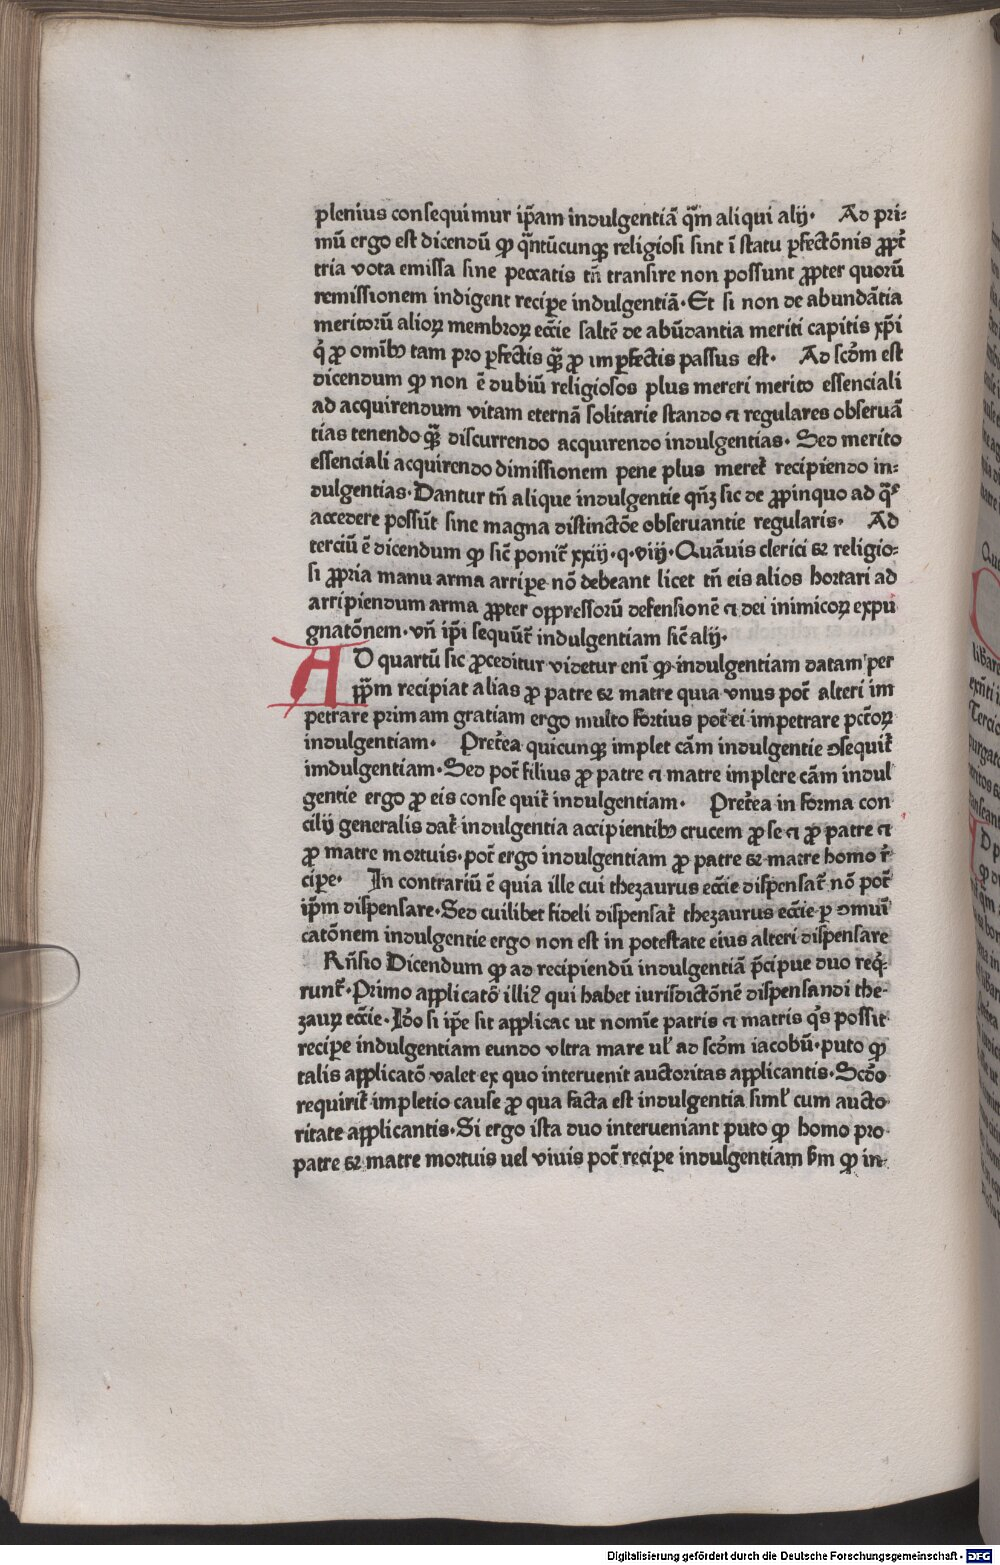 plenius consequimur ip̄am indulgentiā q̄m aliqui alij· Ad pri⸗
mū ergo est dicendū ꝙ q̄ntūcunqꝫ religiosi sint ī statu ꝑfectōnis ꝓpt̄
tria vota emissa sine peccatis tn̄ transire non possunt ꝓpter quorū
remissionem indigent recipe indulgentiā·Et si non de abundātia
meritorū alioꝝ membroꝝ ecc̄ie saltē de abūdantia meriti capitis xp̄i
q̇ ꝓ omībꝰ tam pro ꝑfectis q̄ꝫ ꝓ imꝑfectis passus est· Ad scd̄m est
dicendum ꝙ non ē dubiū religiosos plus mereri merito essenciali
ad acquirendum vitam eternā solitarie stando ⁊ regulares obseruā
tias tenendo q̄ꝫ discurrendo acquirendo indulgentias· Sed merito
essenciali acquirendo dimissionem pene plus meret̄ recipiendo in⸗
dulgentias·Dantur tn̄ alique indulgentie qn̄ꝫ sic de ꝓpinquo ad q̄s
accedere possūt sine magna distinctōe obseruantie regularis· Ad
terciū ē dicendum ꝙ sic̄ ponit̄ xxiij·q·viij·Quāuis clerici ⁊ religio⸗
si ꝓpria manu arma arripe nō debeant licet tn̄ eis alios hortari ad
arripiendum arma ꝓpter oppressorū defensionē ⁊ dei inimicoꝝ expu
gnatōnem·vn̄ ip̄i sequūt̄ indulgentiam sic̄ alij·
AD quartū sic ꝓceditur videtur eni̅ ꝙ indulgentiam datam per
ip̄m recipiat alias ꝓ patre ⁊ matre quia vnus pot̄ alteri im
petrare primam gratiam ergo multo fortius pot̄ ei impetrare pct̄oꝝ
indulgentiam· Pret̄ea quicunqꝫ implet cām indulgentie ↄsequit̄
imdulgentiam·Sed pot̄ filius ꝓ patre ⁊ matre implere cām indul
gentie ergo ꝓ eis conse quit̄ indulgentiam· Pret̄ea in forma con
cilij generalis dat̄ indulgentia accipientibꝰ crucem ꝓ se ⁊ ꝓ patre ⁊
ꝓ matre mortuis·pot̄ ergo indulgentiam ꝓ patre ⁊ matre homo r̄
cipe· In contrariū ē quia ille cui thezaurus ecc̄ie dispensat̄ nō pot̄
ip̄m dispensare·Sed cuilibet fideli dispensat̄ thezaurus ecc̄ie ꝑ ↄmuī
catōnem indulgentie ergo non est in potestate eius alteri dispensare
Rn̄sio Dicendum ꝙ ad recipiendū indulgentiā p̄cipue duo req̇⸗
runt̄·Primo applicatō illiꝰ qui habet iurisdictōnē dispensandi the⸗
zauꝝ ecc̄ie·Id̄o si ip̄e sit applicac ut nomīe patris ⁊ matris q̇s possit
recipe indulgentiam eundo vltra mare ul̄ ad scd̄m iacobū·puto ꝙ
talis applicatō valet ex quo interuenit auctoritas applicantis·Scd̄o
requirit̄ impletio cause ꝓ qua facta est indulgentia siml̄ cum aucto
ritate applicantis·Si ergo ista duo interueniant puto ꝙ homo pro
patre ⁊ matre mortuis uel viuis pot̄ recipe indulgentiam b̄m ꝙ in⸗
Digitalisierung gefördert durch die Deutsche Forschungsgemeinschaft - DFG